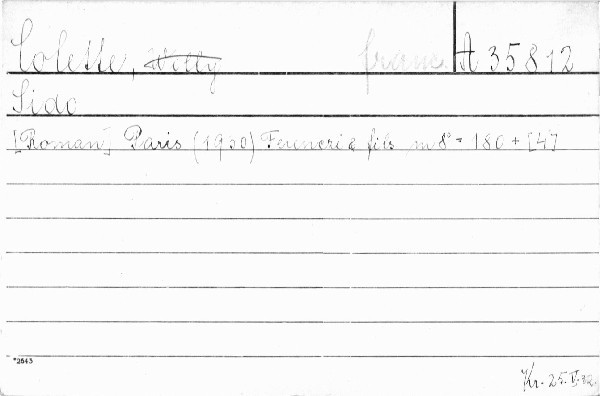 Colette, Willy franc A 35812
Sido
[Roman] Paris (1930) Ferenczi & fils m 8° - 180 + [4]
*2643
Kr. 25. V. 32.